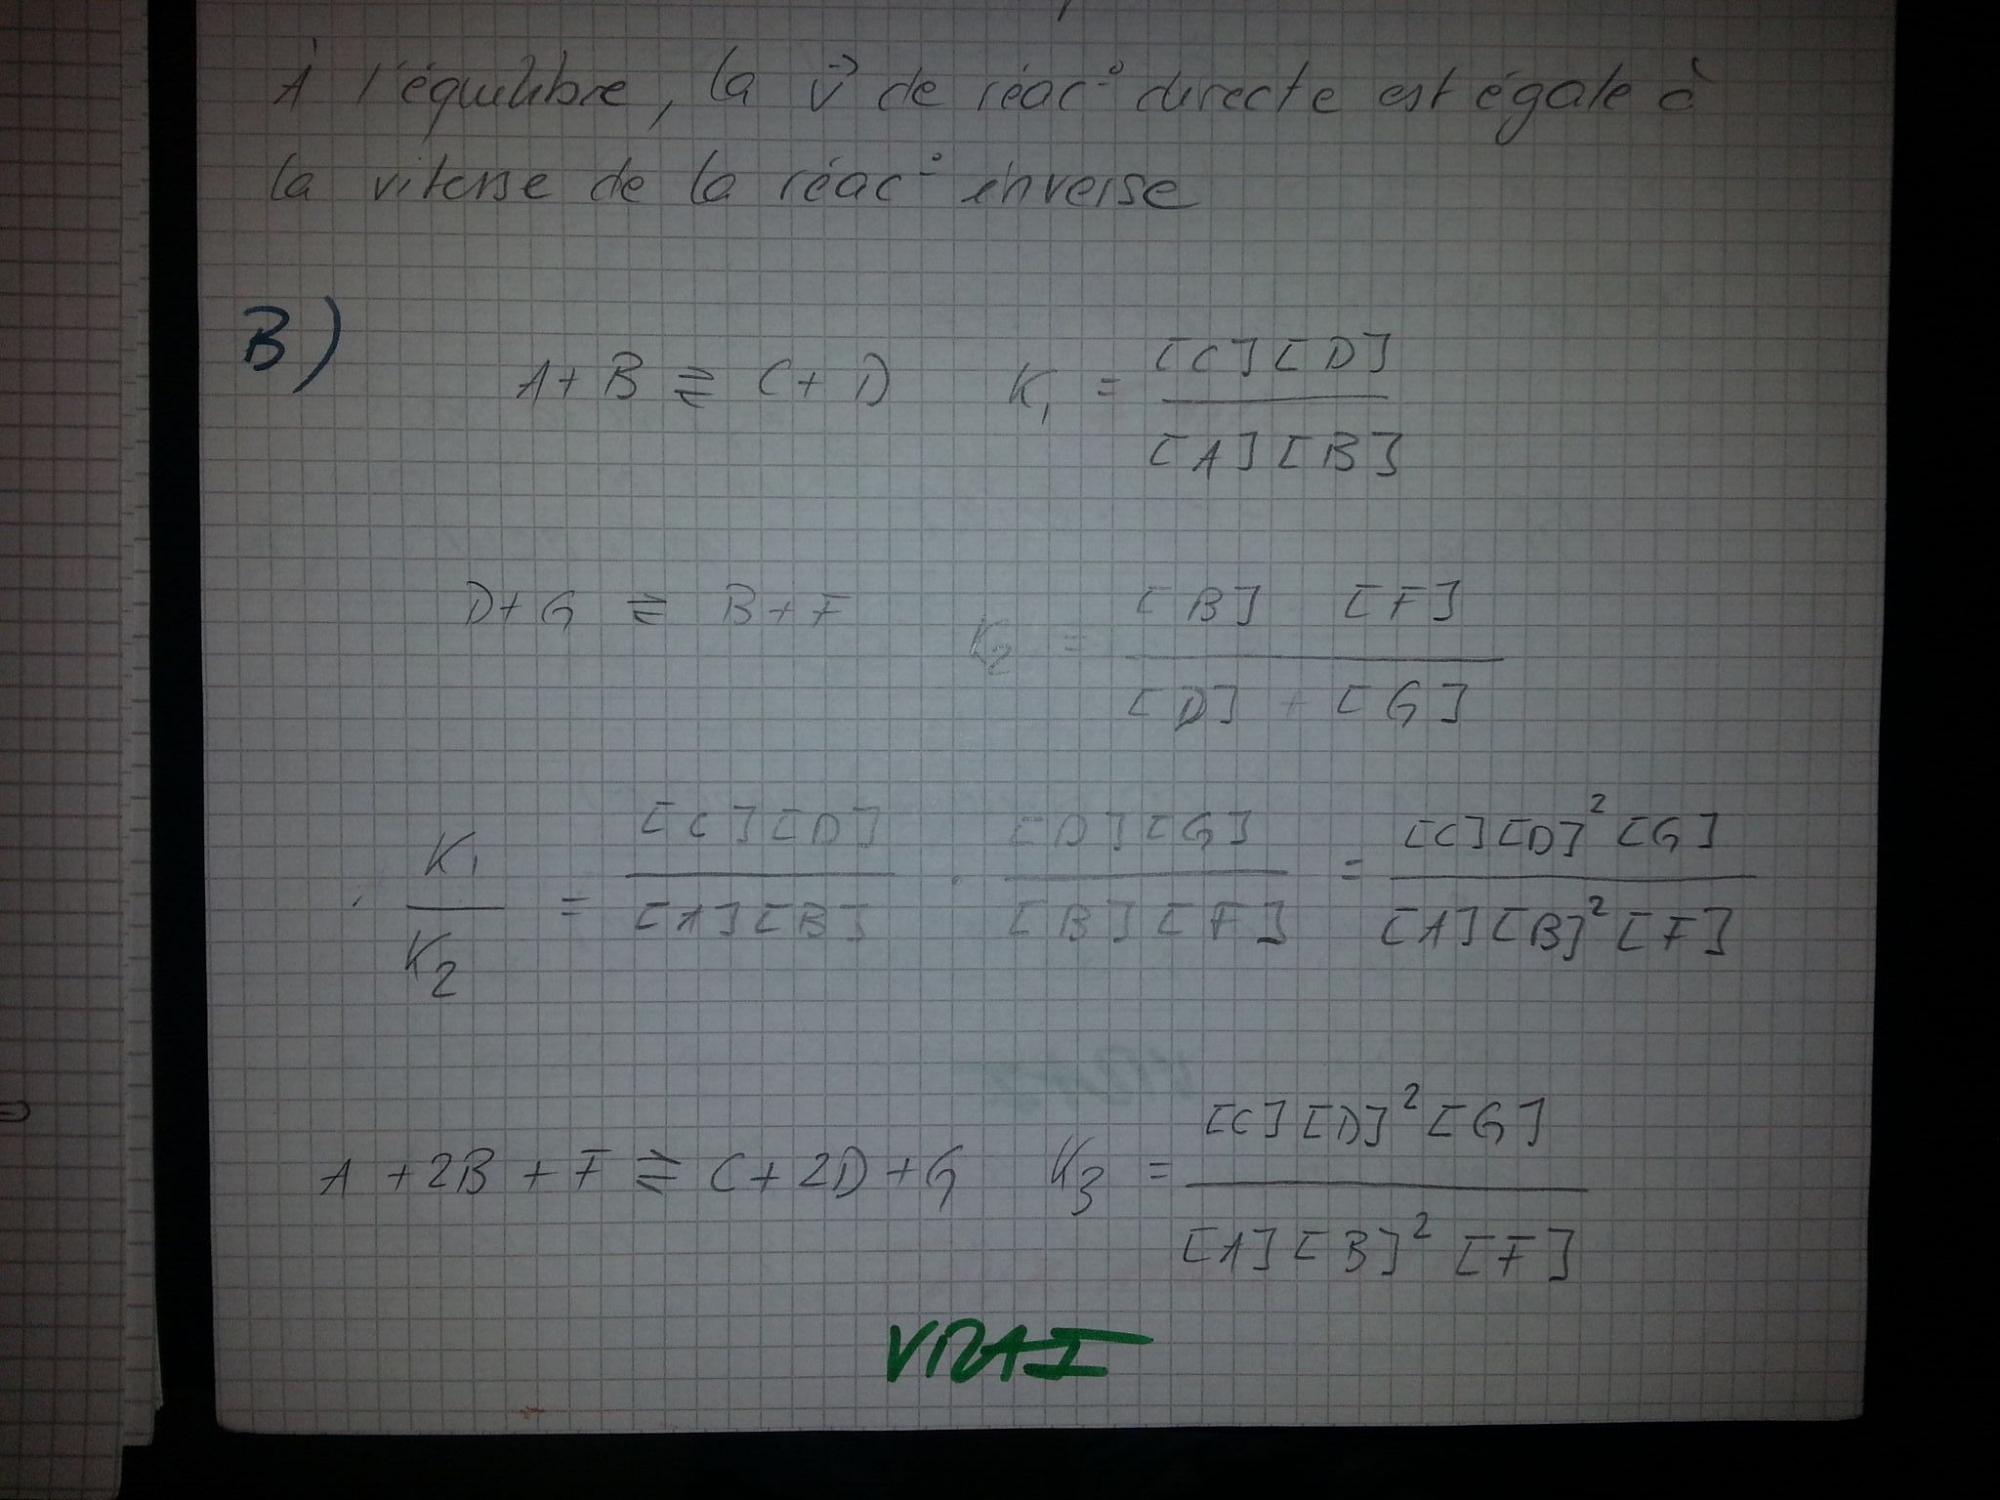 À l'équilibre, la v⃗ de réac° directe est égale à
la vitesse de la réac° inverse
B)
A + B ⇌ C + D   K₁ = [C][D] / [A][B]
D + G ⇌ B + F   K₂ = [B] [F] / [D] + [G]
K₁ / K₂ = [C][D] / [A][B] · [D][G] / [B][F] = [C][D]²[G] / [A][B]²[F]
A + 2B + F ⇌ C + 2D + G   K₃ = [C][D]²[G] / [A][B]²[F]
VRAI